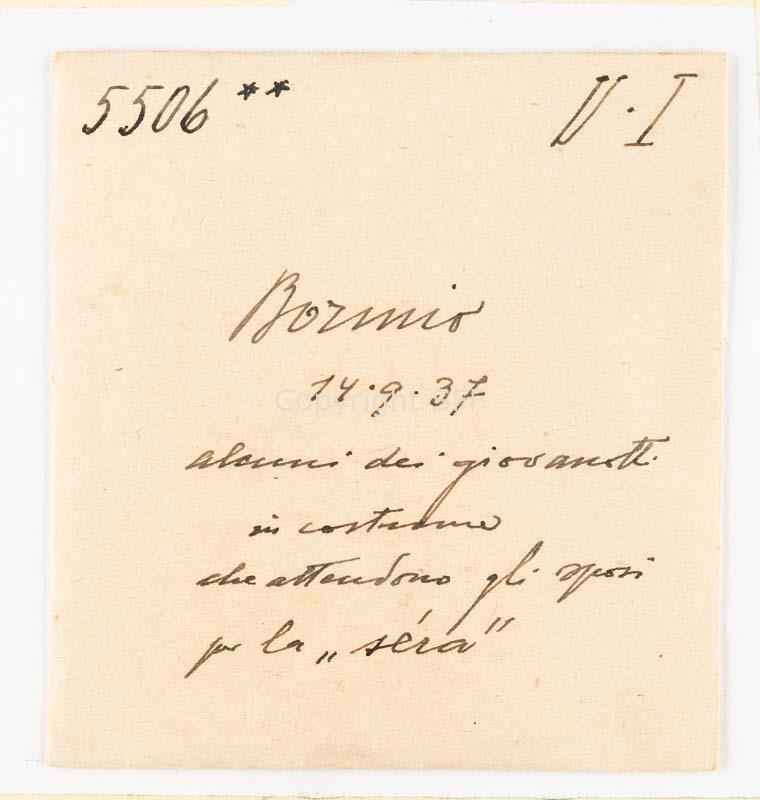 5506** V·I
Bormio
14·9·37
alcuni dei giovanotti
in costume
che attendono gli sposi
per la „séra"